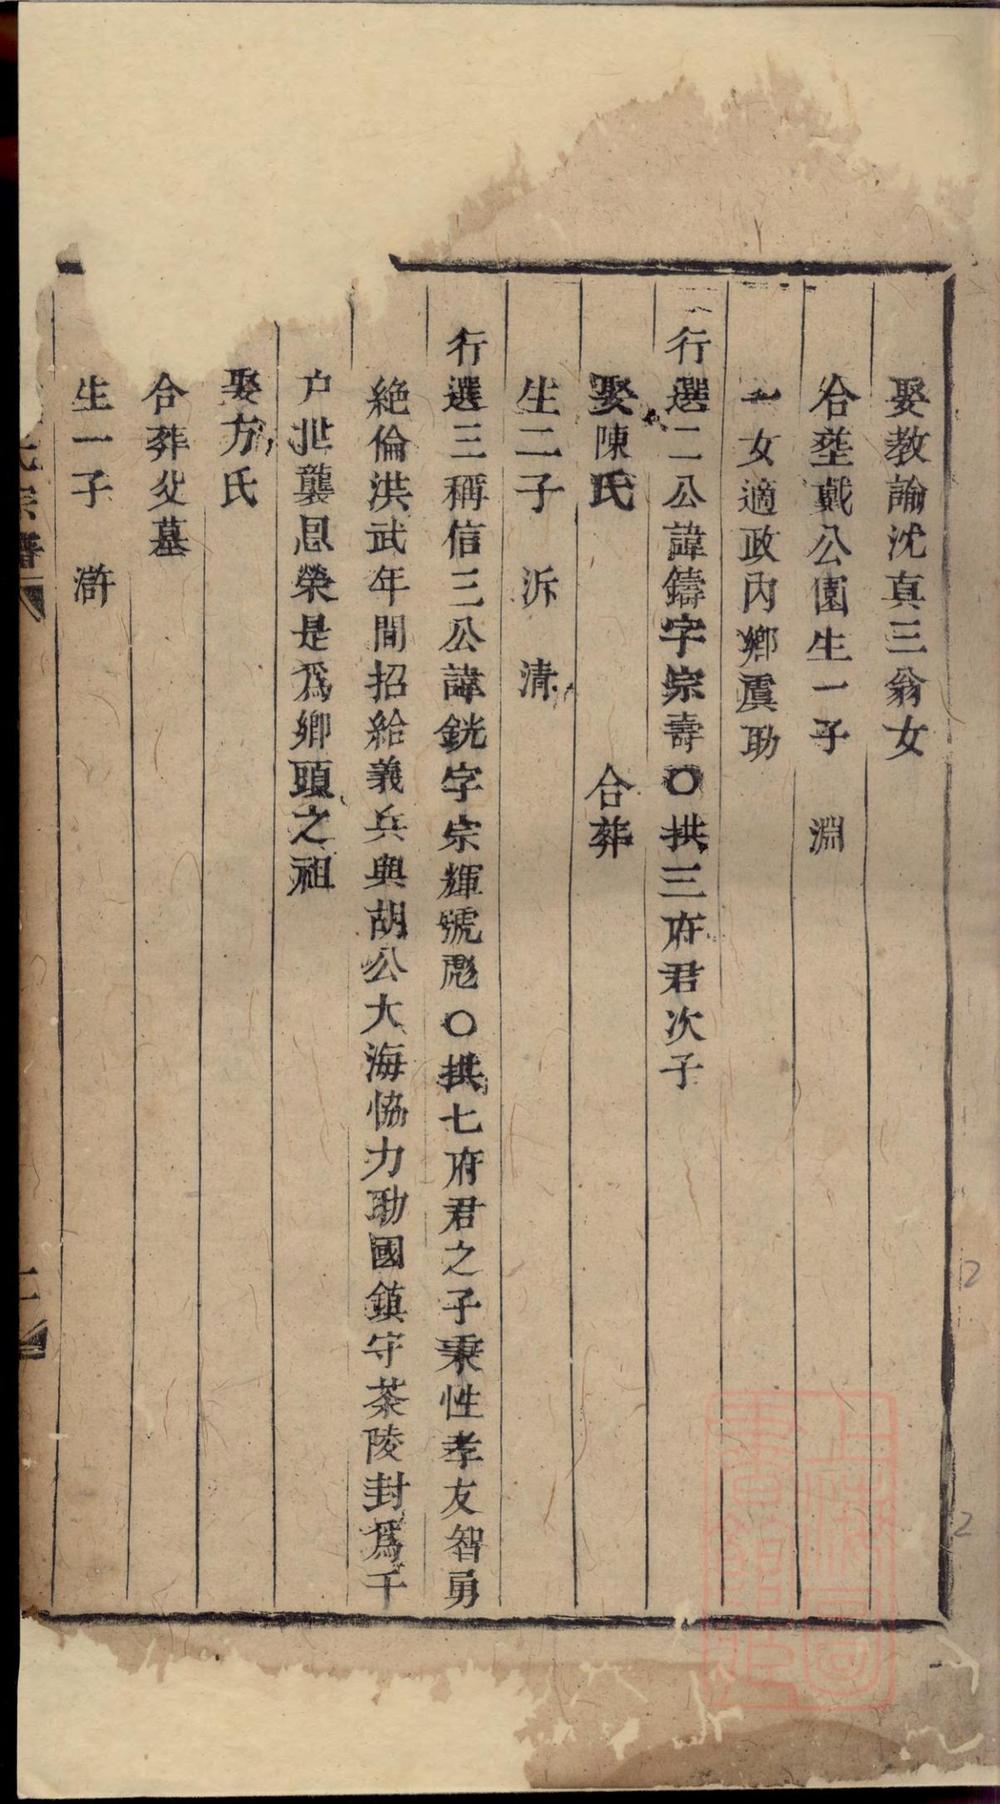 娶教諭沈真三翁女
合塟戴公園生一子　淵
一女適政內鄉虞助
行選二公諱鑄字宗壽〇拱三府君次子
娶陳氏　合葬
生二子　泝　清
行選三稱信三公諱銧字宗輝號彪〇拱七府君之子秉性孝友智勇
絶倫洪武年間招給義兵與胡公大海恊力助國鎮守茶陵封爲千
户世襲恩榮是爲鄉頭之祖
娶方氏
合葬父墓
生一子　滸